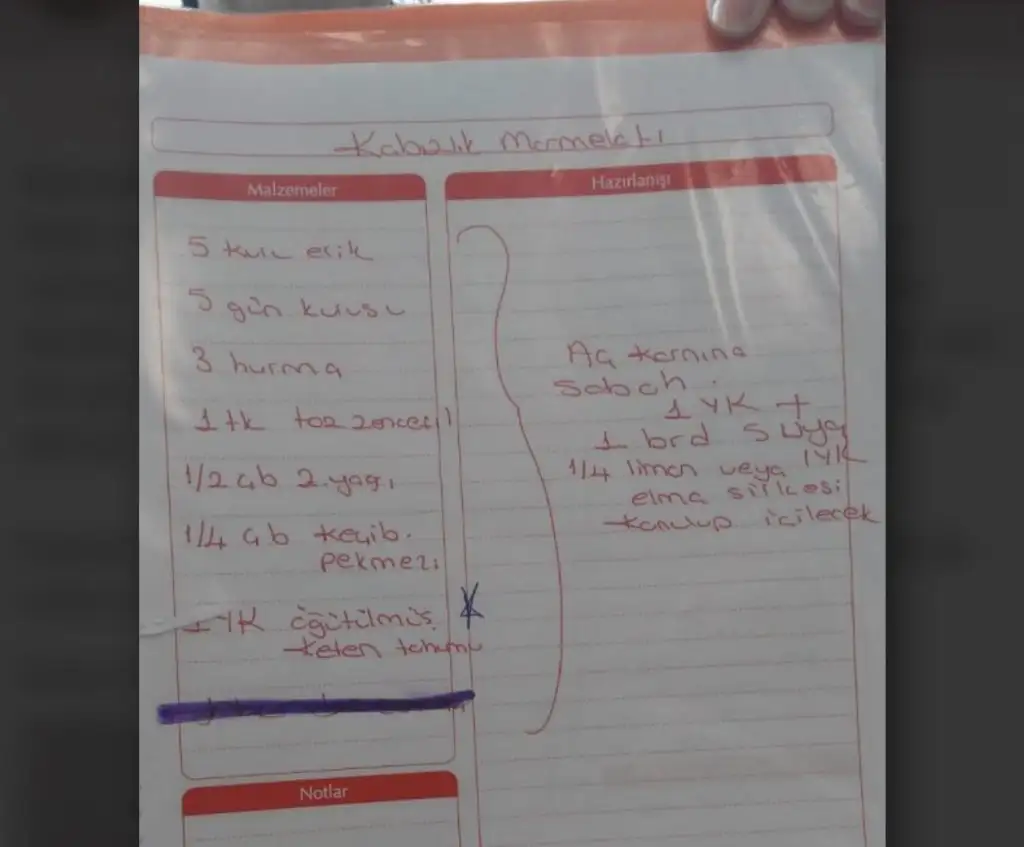 Kabızlık Marmelatı
Malzemeler
5 kuru erik
5 gün kurusu
3 hurma
1 tk toz zencefil
1/2 çb z.yağı
1/4 çb keçib.
pekmezi
1 YK öğütülmüş
keten tohumu
Hazırlanışı
Aç karnına
sabah.
1 YK +
1 brd suya
1/4 limon veya 1YK
elma sirkesi
konulup içilecek
Notlar